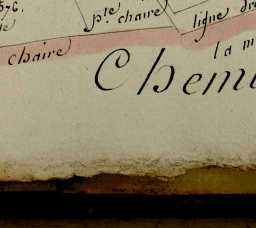 pte. chaire
ligne
chaire
la m
Chemi